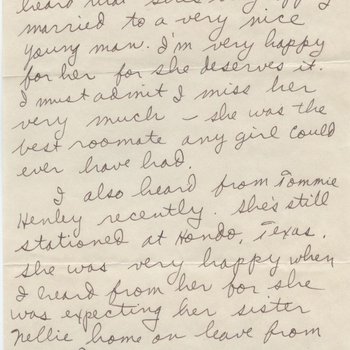 heard that
married to a very nice
young man. I'm very happy
for her for she deserves it.
I must admit I miss her
very much — she was the
best roomate any girl could
ever have had.
I also heard from Tommie
Henley recently. She's still
stationed at Hondo, Texas.
She was very happy when
I heard from her for she
was expecting her sister
Nellie home on leave from